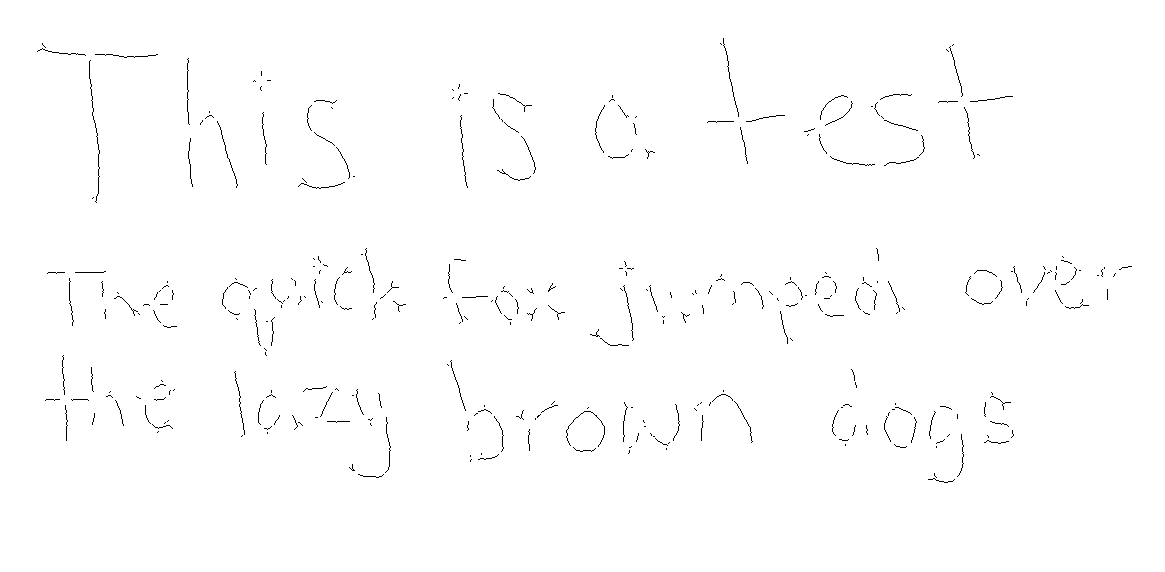 This is a test
The quick fox jumped over
the lazy brown dogs